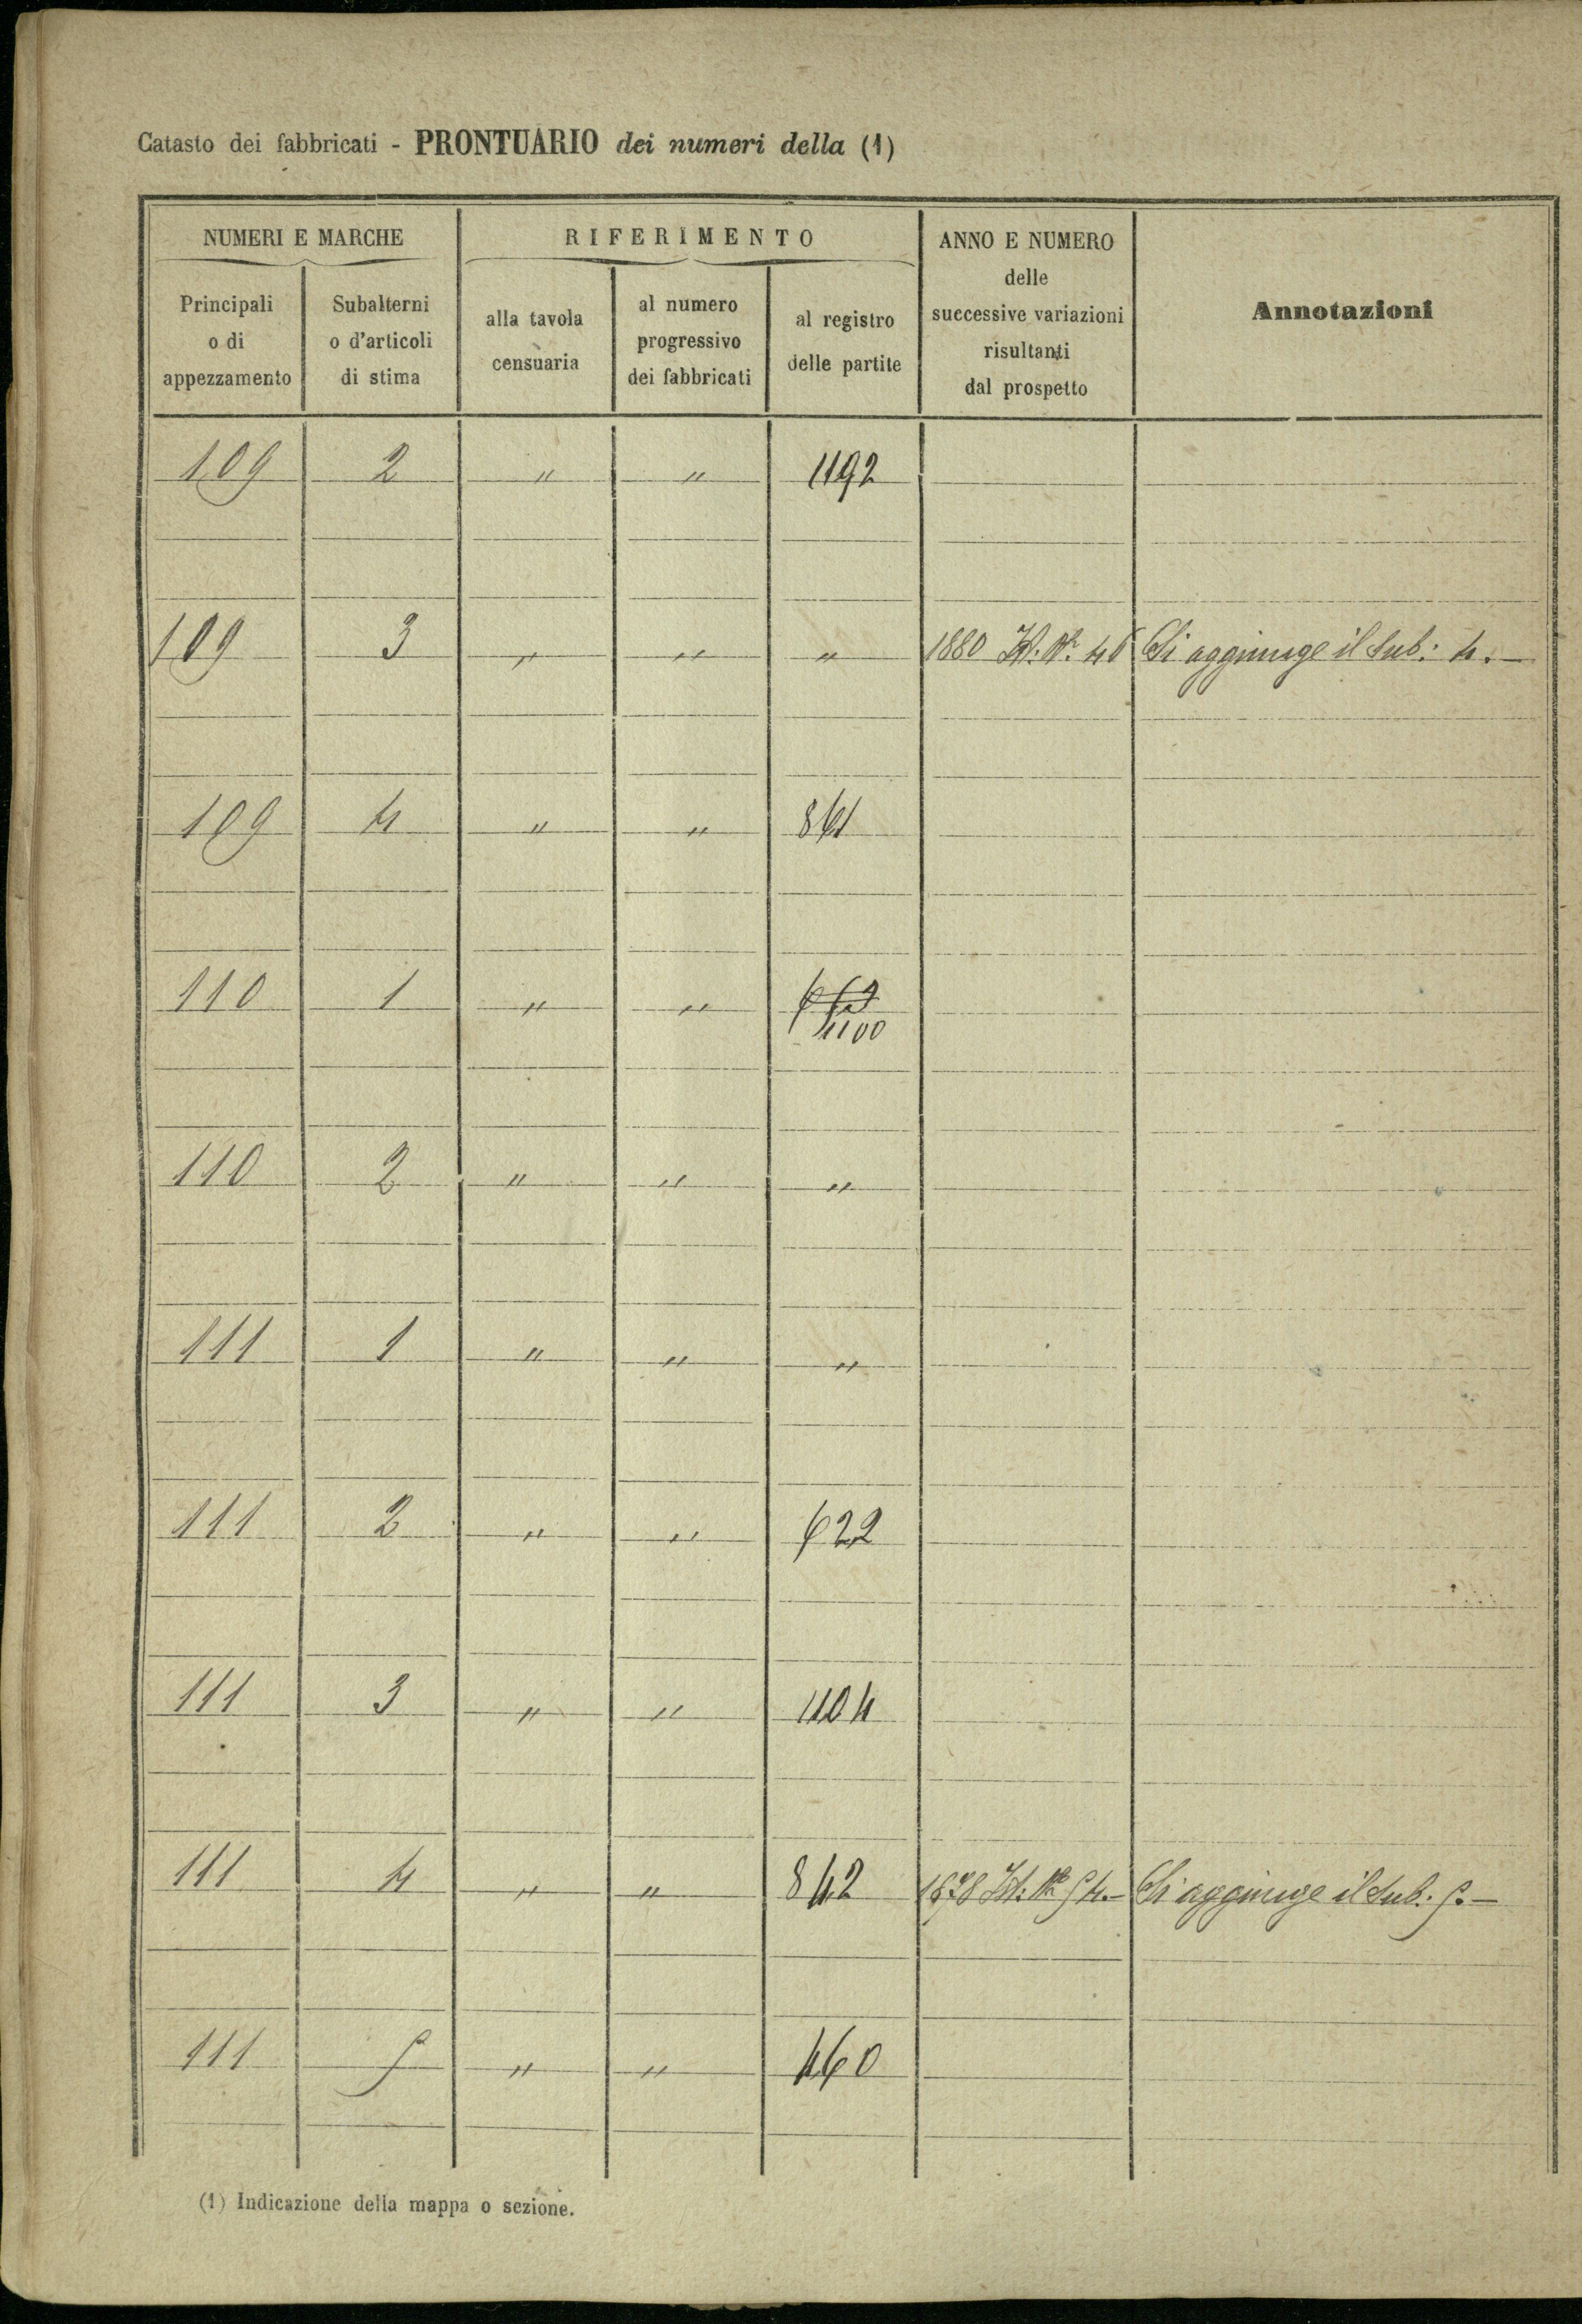 Catasto dei fabbricati - PRONTUARIO dei numeri della (1)
NUMERI E MARCHE
RIFERIMENTO
ANNO E NUMERO
delle
successive variazioni
risultanti
dal prospetto
Annotazioni
Principali
o di
appezzamento
Subalterni
o d'articoli
di stima
alla tavola
censuaria
al numero
progressivo
dei fabbricati
al registro
delle partite
109 2 " " 1192
109 3 " " " 1880 Si aggiunge il sub: 4.—
109 4 " "
110 1 " "
1100
110 2 " " "
111 1 " " "
111 2 " " 622
111 3 " " 1104
111 4 " " 842 1878 Si aggiunge il sub: 5.—
111 5 " " 460
(1) Indicazione della mappa o sezione.